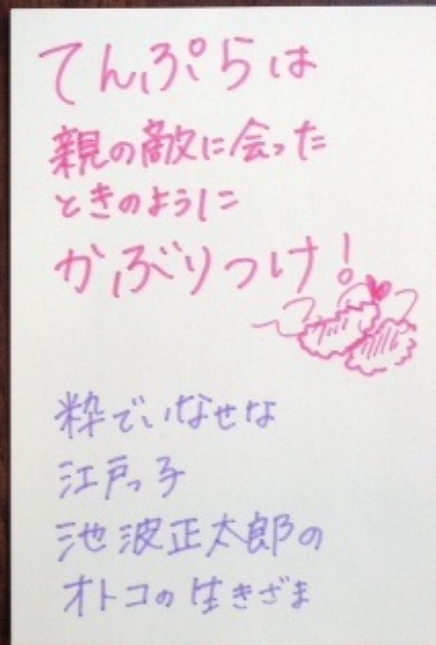 てんぷらは
親の敵に会った
ときのように
かぶりつけ！
粋でいなせな
江戸っ子
池波正太郎の
オトコの生きざま